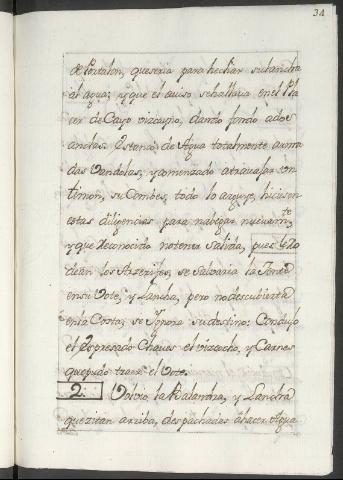 34
de Portalon, que seria para hechar su lancha
al agua; y que el aviso se hallava en el Pla
cer de Cayo vizcayno, dando fondo a dos
anclas. Estanco de Agua totalmente arma
das vandolas, y comenzado atravasar con
timon, su Combes, todo lo arguye, hiciesen
estas diligencias para nabegar nuevam.te
y que deconocido no tener salida, pues le Ro
dean los Arrezifes, se salvaria la
en su Vote, y Lancha, pero no descubierta
en la Costa; se Ygnora su destino: Condujo
el Expresado Chaves el vizcocho, y Carnes
que pudo traer el Vote.
2. Volvio, la Balandra, y Lancha
que zitan arriba, despachadas á hacer Agua